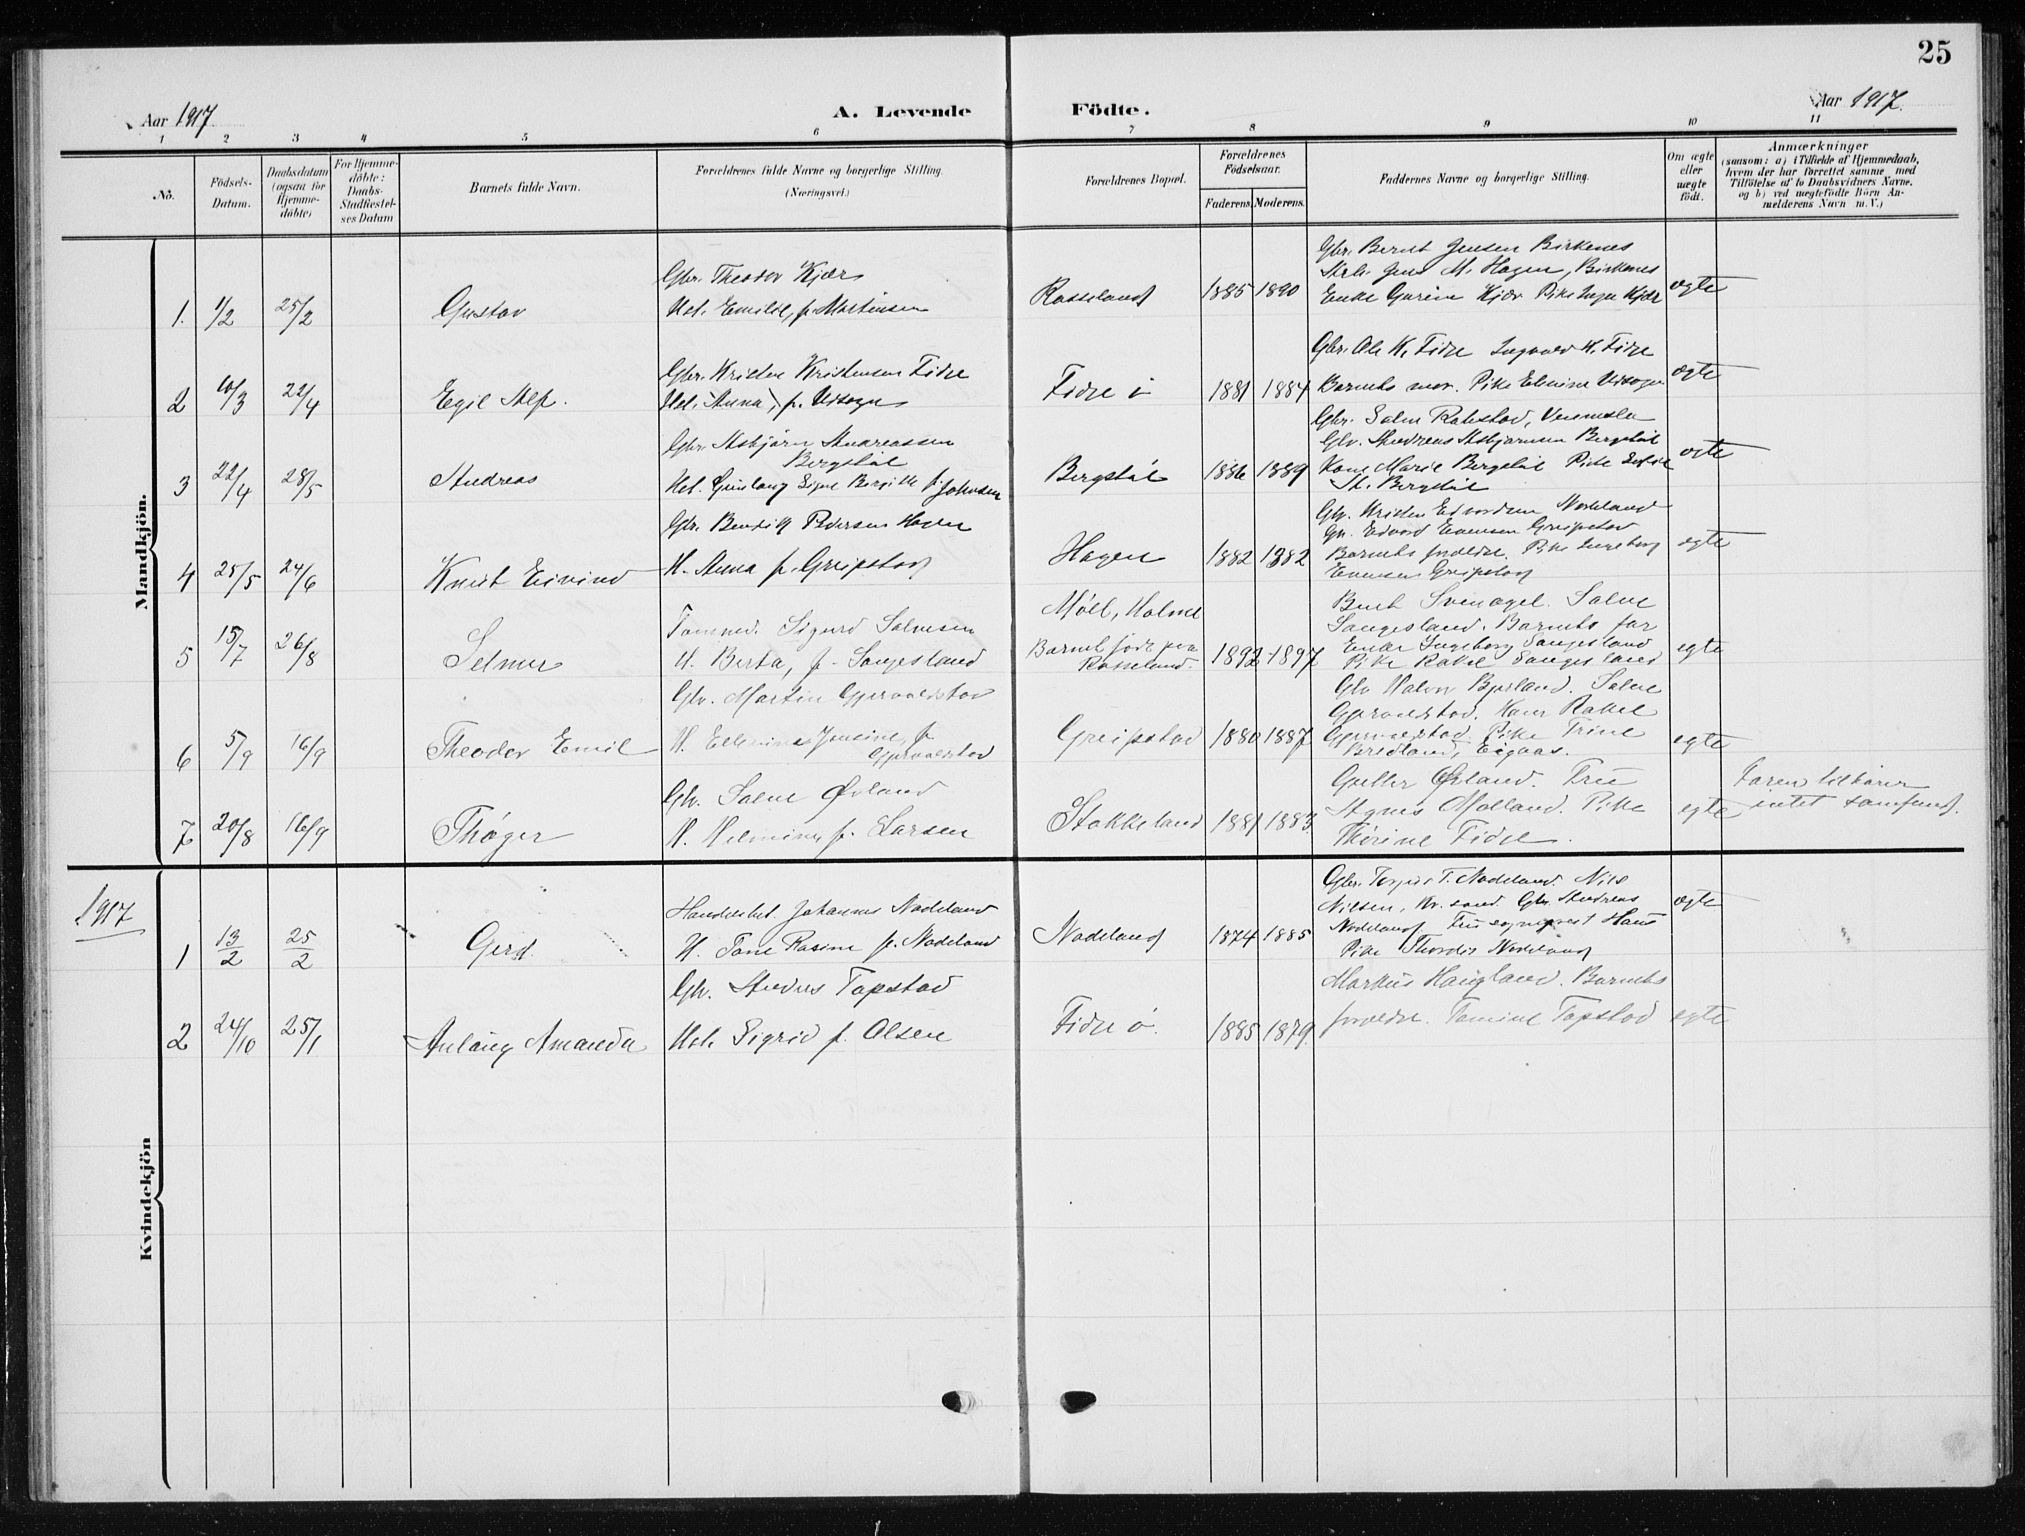 25
Aar 1917
A. Levende
Födte.
Aar 1917.
1 2 3 4 5 6 7 8 9 10 11
No.
Födsels-
Datum.
Daabsdatum
(ogsaa for
Hjemme-
döbte)
For Hjemme-
döbte:
Daabs-
Stadfæstel-
ses Datum
Barnets fulde Navn.
Forældrenes fulde Navne og borgerlige Stilling.
(Næringsvei.)
Forældrenes Bopæl.
Forældrenes
Födselsaar.
Faderens. Moderens.
Faddernes Navne og borgerlige Stilling.
Om ægte
eller
uægte
födt.
Anmærkninger
(saasom: a) i Tilfælde af Hjemmedaab,
hvem der har forrettet samme, med
Tilföielse af to Daabsvidners Navne,
og b) ved uegtefödte Börn An-
melderens Navn m. V.)
Mandkjön.
1. 1/2 25/2 Gustav
Gbr. Theodor Kjær
Hst. Emilie, f. Mortensen
Rosseland 1885 1890
Gbr. Bernt Jensen Birkenes
Jens M. Hagen, Birkenes
Enke Gurine Kjær Pike Inga Kjær
ægte
2 10/3 22/4 Egil Alf.
Gbr. Kristen Kristensen Fidje
Hst. Anna, f.
Fidje ö 1881 1884
Gbr. Ole K. Fidje Ingvald K. Fidje
Barnets mor. Pike Elmine
ægte
3 22/4 28/5 Andreas
Gbr. Asbjörn Andreassen
Bergstöl
Hst. Gunlaug Signe Borgille f. Johnsen
Bergstöl 1886 1889
Gbr. Salve Robstad, Vennesla
Gbr. Andreas Asbjörnsen Bergstöl
Kone Marie Bergstöl Pike
A. Bergstöl
ægte
4 25/5 24/6 Knut Eivind
Gbr. Bendik Pedersen Hagen
H. Anna f. Greipstad
Hagen 1882 1882
Gbr. Kristen Edvardsen Nodeland
Gbr. Edvard Evensen Greipstad
Barnets foreldre. Pike Ingeborg
Evensen Greipstad
egte
5 15/7 26/8 Selmer
Tömmerm. Sigurd Salvesen
H. Berta, f. Sangesland
Möll, Holme
Barnet födt paa
Rosseland. 1892 1897
Salve
Sangesland. Barnets far
Enke Ingeborg Sangesland
Pike Rakel Sangesland
egte
6 5/9 16/9 Theodor Emil
Gbr. Martin Gjervoldstad
H. Ellenine Jensine, f.
Gjervoldstad
Greipstad 1880 1887
Gbr Halvor Bjorland. Salve
Gjervoldstad. Kone Rakel
Gjervoldstad. Pike Trine
Bredland, Eigaas.
egte
7 20/8 16/9 Thöger
Gbr. Salve Övland
H. Helmine, f. Larsen
Stokkeland 1881 1883
Övland. Fru
Agnes Molland. Pike
Thörine Fidje.
egte
Faren tilhörer
intet samfund.
1917
Kvindekjön
1 13/2 25/2 Gerd.
Handelsbet. Johannes Nodeland
H. Tone Rasine f. Nodeland
Nodeland 1874 1885
Gbr. Terjus T. Nodeland. Nils
Nilsen, Kr.sand. Gbr. Andreas
Nodeland Fru sogneprest
Pike Thordis Nodeland
ægte
2 24/10 25/1 Anlaug Amanda
Gbr. Andres Topstad
Hst. Sigrid f. Olsen
Fidje ö. 1885 1879.
Markus Haugland. Barnets
foreldre. Tomine Topstad
egte